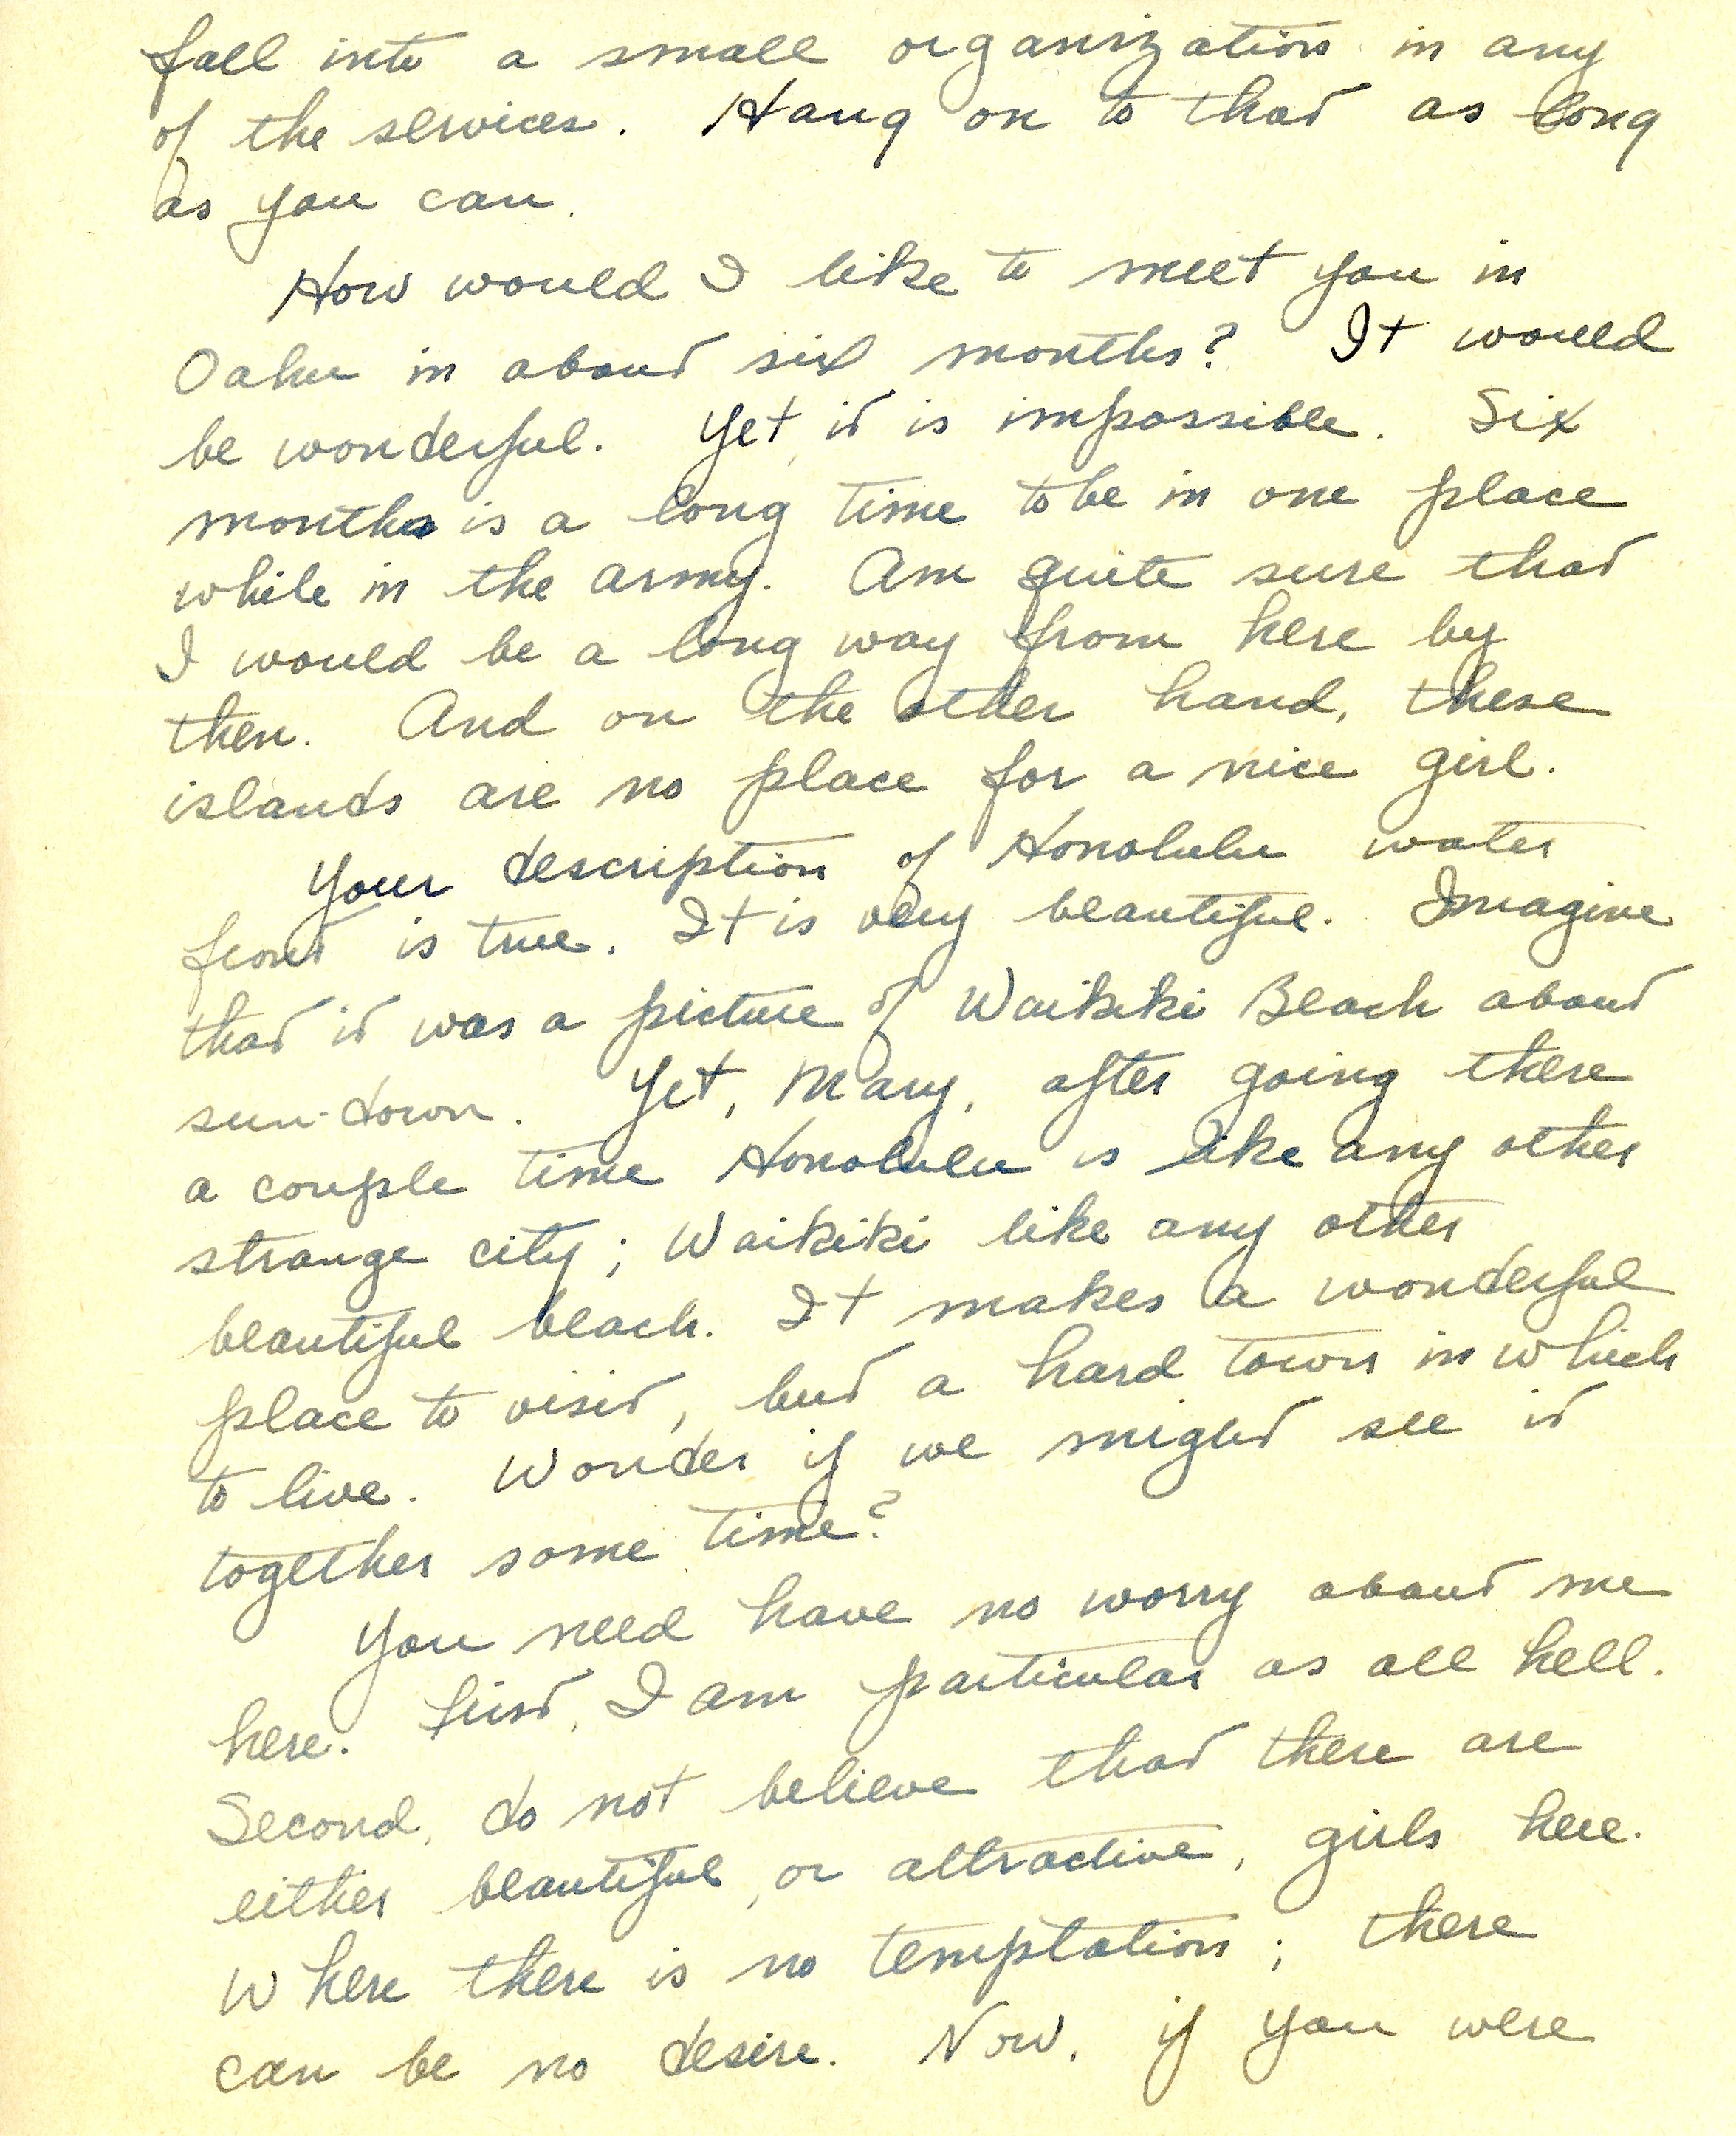 fall into a small organization in any
of the services. Hang on to that as long
as you can.
How would I like to meet you in
Oahu in about six months? It would
be wonderful. Yet it is impossible. Six
months is a long time to be in one place
while in the army. Am quite sure that
I would be a long way from here by
then. And on the other hand, these
islands are no place for a nice girl.
Your description of Honolulu water
front is true. It is very beautiful. Imagine
that it was a picture of Waikiki Beach about
sun-down. Yet, Mary, after going there
a couple time Honolulu is like any other
strange city; Waikiki like any other
beautiful beach. It makes a wonderful
place to visit, but a hard town in which
to live. Wonder if we might see it
together some time?
You need have no worry about me
here. First, I am particular as all hell.
Second, do not believe that there are
either beautiful, or attractive, girls here.
Where there is no temptation; there
can be no desire. Now, if you were